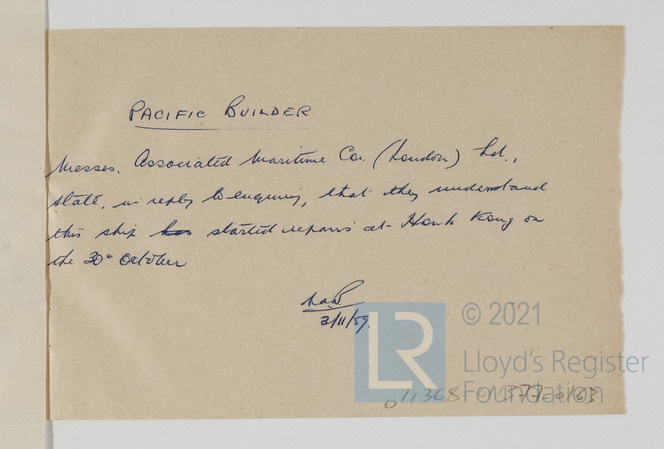 PACIFIC BUILDER
Messrs. Associated Maritime Co. (London) Ltd.,
state, in reply to enquiry, that they understand
this ship has started repairs at Honk Kong on
the 30th October
2/11/59.
© 2021
LR
Lloyd's Register
Foundation